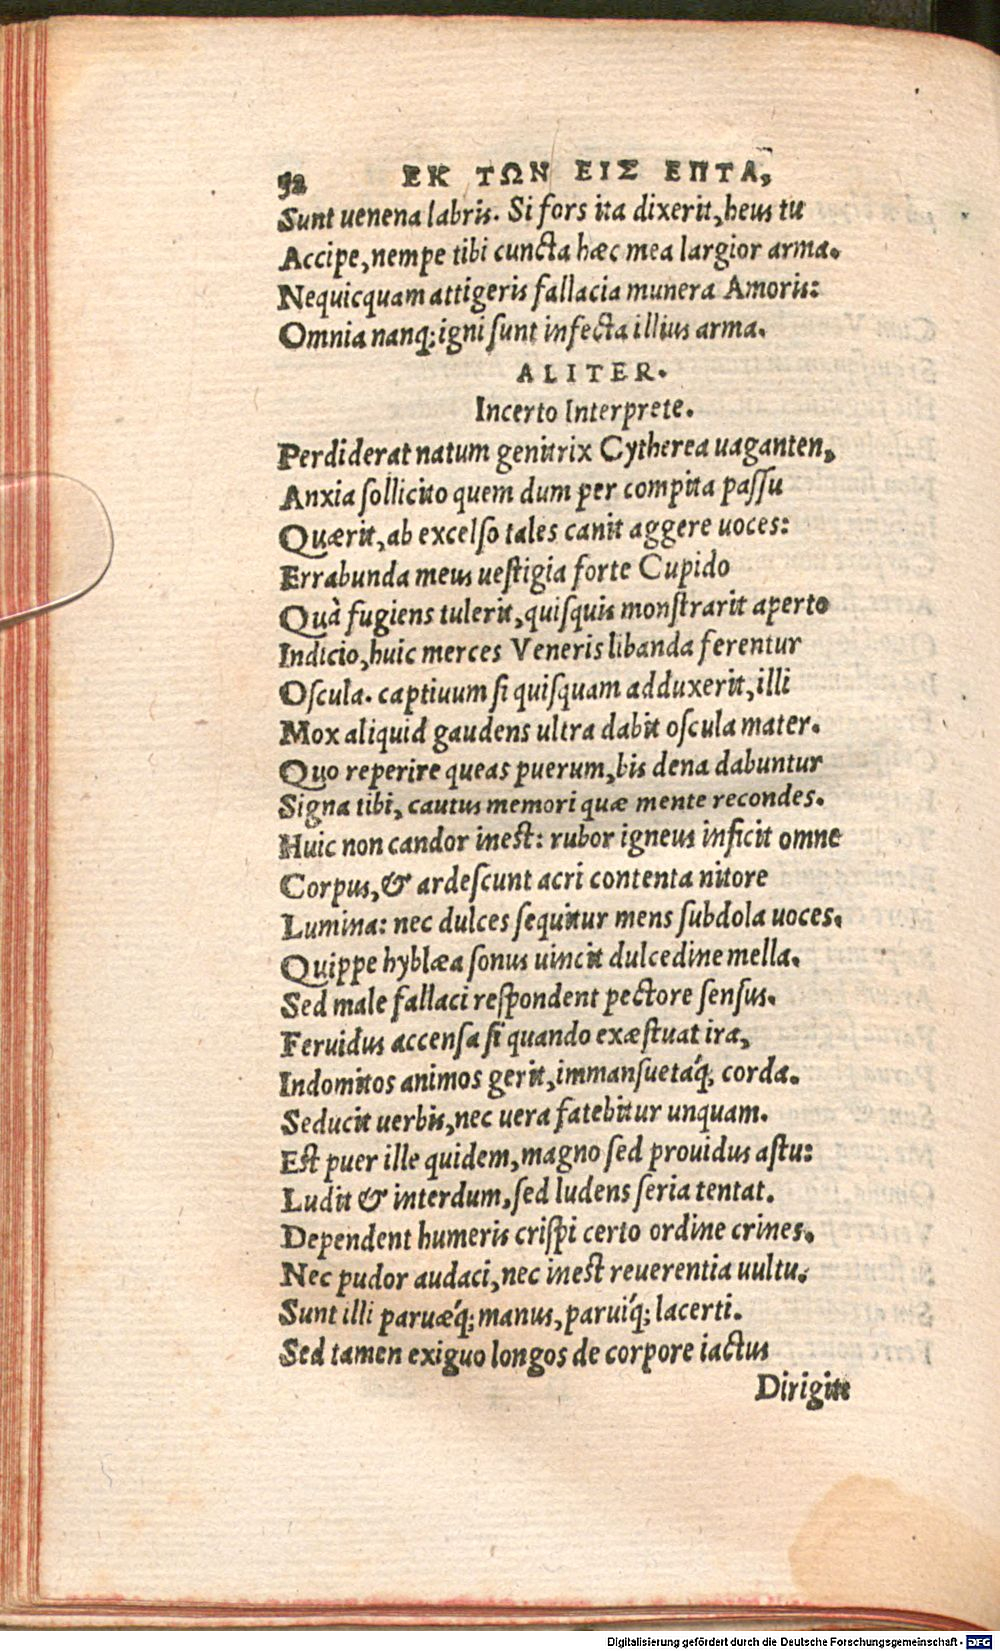 92 ΕΚ ΤΩΝ ΕΙΣ ΕΠΤΑ,
Sunt uenena labris. Si fors ita dixerit, heus tu
Accipe, nempe tibi cuncta hæc mea largior arma.
Nequicquam attigeris fallacia munera Amoris:
Omnia nanq; igni sunt infecta illius arma.
ALITER.
Incerto Interprete.
Perdiderat natum genitrix Cytherea uaganten,
Anxia sollicito quem dum per compita passu
Quærit, ab excelso tales canit aggere uoces:
Errabunda meus uestigia forte Cupido
Quà fugiens tulerit, quisquis monstrarit aperto
Indicio, huic merces Veneris libanda ferentur
Oscula. captiuum si quisquam adduxerit, illi
Mox aliquid gaudens ultra dabit oscula mater.
Quo reperire queas puerum, bis dena dabuntur
Signa tibi, cautus memori quæ mente recondes.
Huic non candor inest: rubor igneus inficit omne
Corpus, & ardescunt acri contenta nitore
Lumina: nec dulces sequitur mens subdola uoces.
Quippe hyblæa sonus uincit dulcedine mella.
Sed male fallaci respondent pectore sensus.
Feruidus accensa si quando exæstuat ira,
Indomitos animos gerit, immansuetáq; corda.
Seducit uerbis, nec uera fatebitur unquam.
Est puer ille quidem, magno sed prouidus astu:
Ludit & interdum, sed ludens seria tentat.
Dependent humeris crispi certo ordine crines.
Nec pudor audaci, nec inest reuerentia uultu.
Sunt illi paruæq́; manus, paruiq́; lacerti.
Sed tamen exiguo longos de corpore iactus
Dirigit
Digitalisierung gefördert durch die Deutsche Forschungsgemeinschaft - DFG